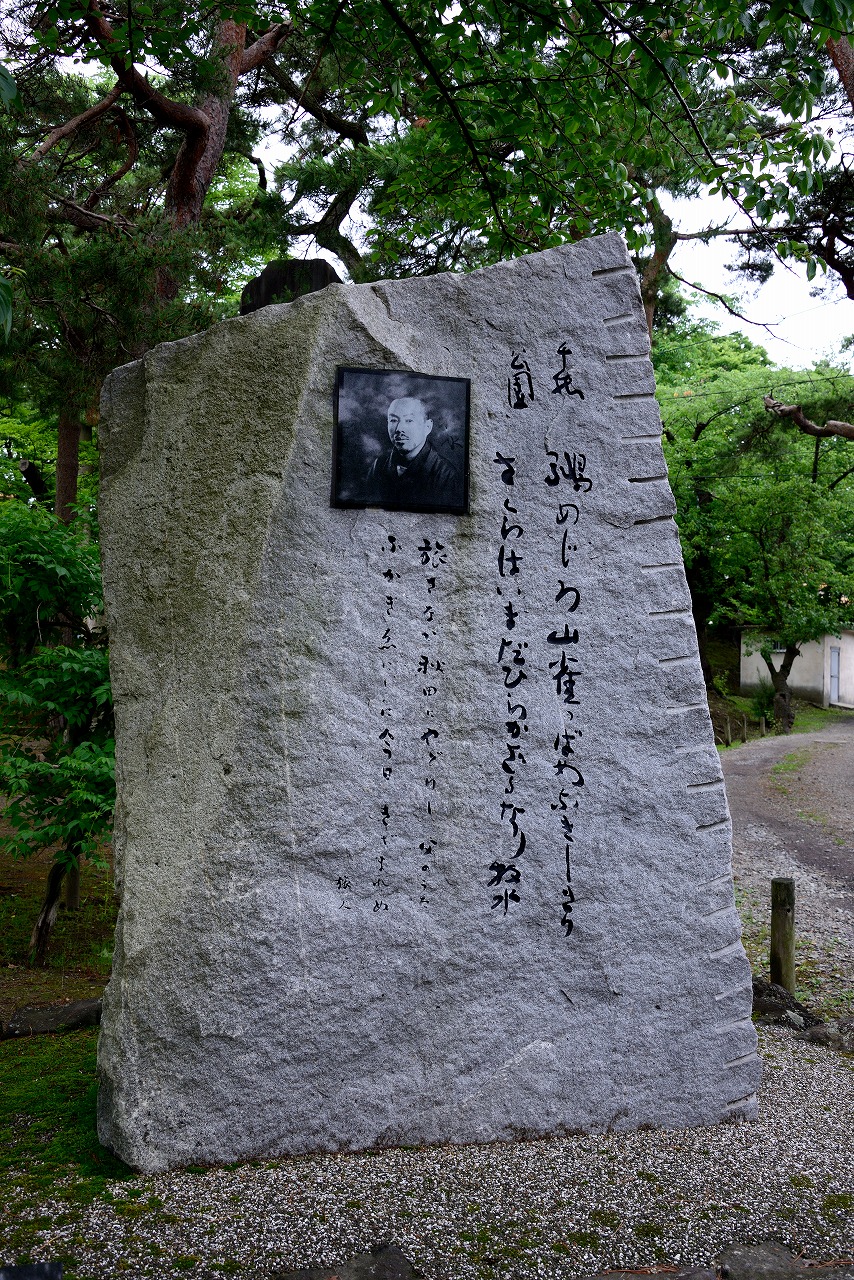 千秋
公園
鶸めじろ山雀つばめなきしきり
さくらはいまだひらかざるなり 牧水
旅さなか秋田にやどりし父のうた
ふかきえにしに今日きざまれぬ
旅人